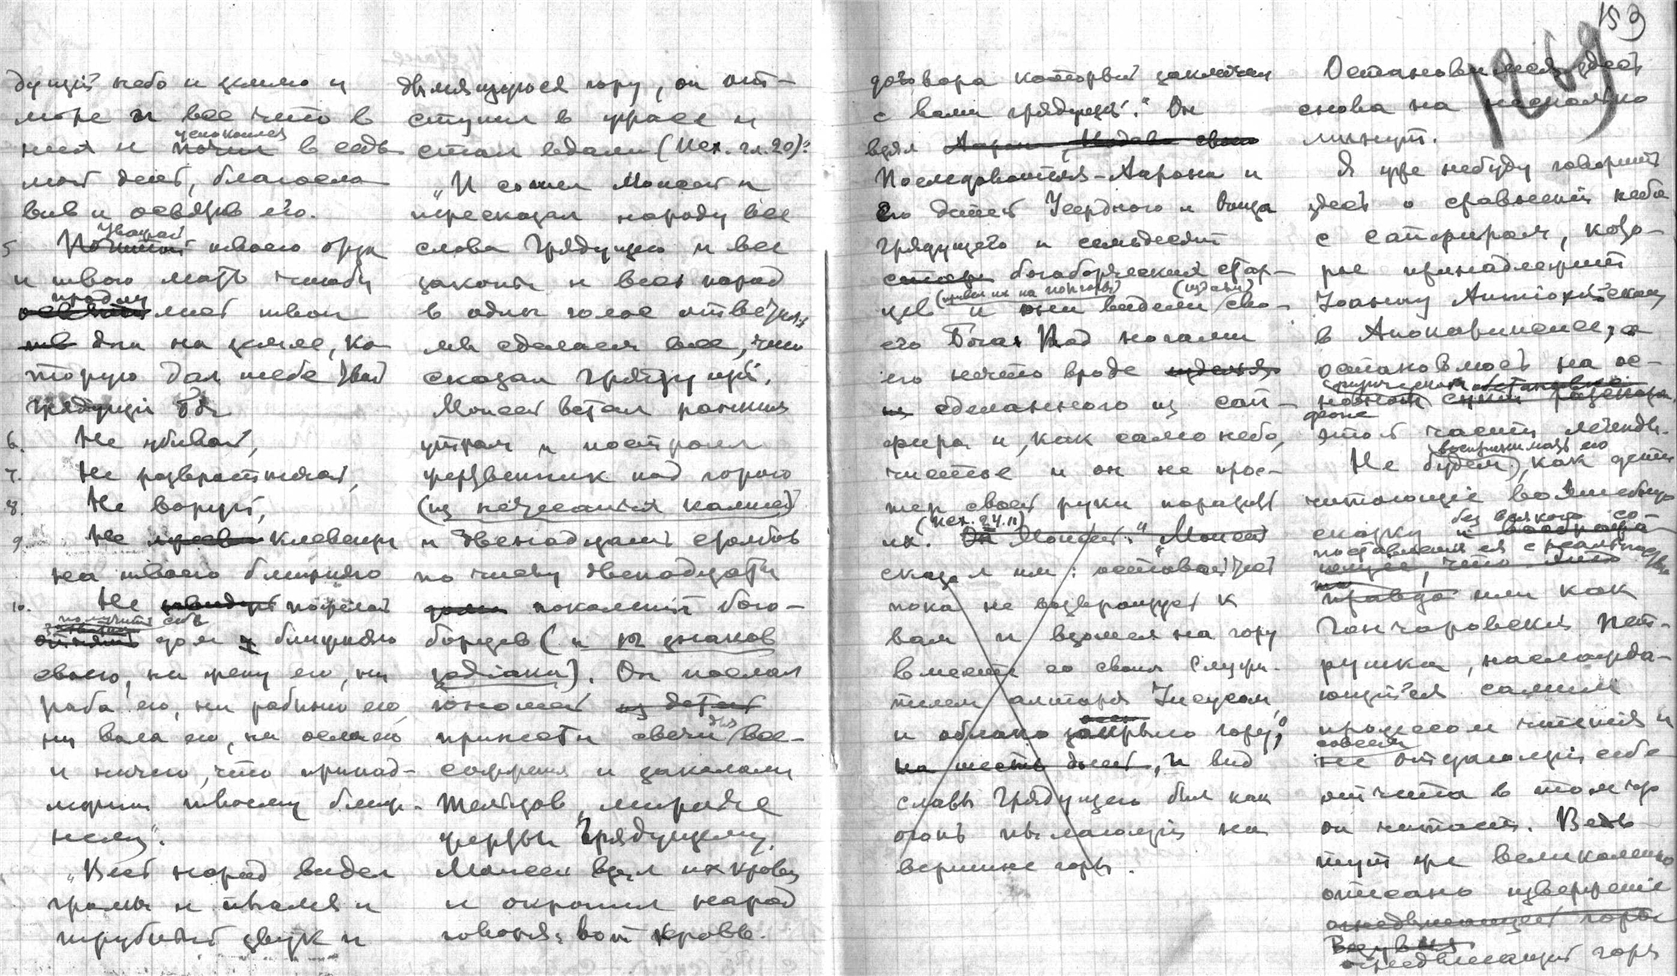 дущий небо и землю и
море и все что в
них и почил успокоился в седь
мой день, благосло
вив и освятив его.
5 Почитай Уважай твоего отца
и твою мать чтобы
продлились твои
дни на земле, ко
торую дал тебе твой
Грядущий бог
6. Не убивай,
7. Не развратничай,
8. Не воруй,
9. Не клевещи
на твоего ближнего
10. Не пожелай
получить себе дом ближнего
своего, ни жену его, ни
раба его, ни рабыню его,
ни вола его, ни осла его
и ничего, что принад-
лежит твоему ближ-
нему".
"Весь народ видел
громы и пламя и
трубный звук и
дымящуюся гору, он от-
ступил в ужасе и
стал вдали (Исх. гл. 20):
"И сошел Моисей и
пересказал народу все
слова Грядущего и все
законы и весь народ
в один голос отвечал
мы сделаем все, что
сказал Грядущий.
Моисей встал ранним
утром и построил
жертвенник под горою
(из нетесанных камней)
и двенадцать столбов
по числу двенадцати
поколений бого-
борцев (и 12 знаков
зодиака). Он послал
юношей из детей
принести свечи для все-
сожжения и закалали
тельцов, мирные
жертвы Грядущему.
Моисей взял их кровь
и окропил народ
говоря: вот кровь
153
1269
договора который заключил
с вами Грядущий." Он
взял
Последователя-Аарона и
его детей Усердного и Отца
Грядущего и семьдесят
богоборческих стар-
цев и они видели сво-
его Бога. Под ногами
его нечто вроде изделия
из сделанного из сап-
фира и, как само небо,
чистое и он не прос-
тер своей руки поразить
их. (Исх. 24.11) Моисей." "Моисей
сказал им: оставайтесь
пока не возвращусь к
вам и взошел на гору
вместе со своим Служи-
телем алтаря Иисусом,
и облако закрыло гору,
на шесть дней, и вид
славы Грядущего был как
огонь пылающий на
вершине горы.
Остановимся здесь
снова на несколько
минут.
Я уже не буду говорить
здесь о сравнении неба
с сапфиром, кото-
рое принадлежит
Иоанну Антиохийскому
в Апокалипсисе, а
остановлюсь на ос-
новном
фоне
этой части легенды.
Не будем воспринимать его, как дети
читающие волшебную
сказку без всякого со-
поставления ея с реально
правда или как
Гончаровский Пет-
рушка, наслажда-
ющийся самим
процессом чтения и
не совсем отдающий себе
отчета в том что
он читает. Ведь
тут же великолепно
описано извержение
огнедышащей горы
Везувия
огнедышащей горы